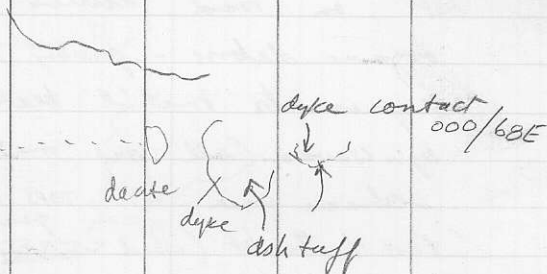 dyke contact
000/68E
dacite
dyke
ash tuff